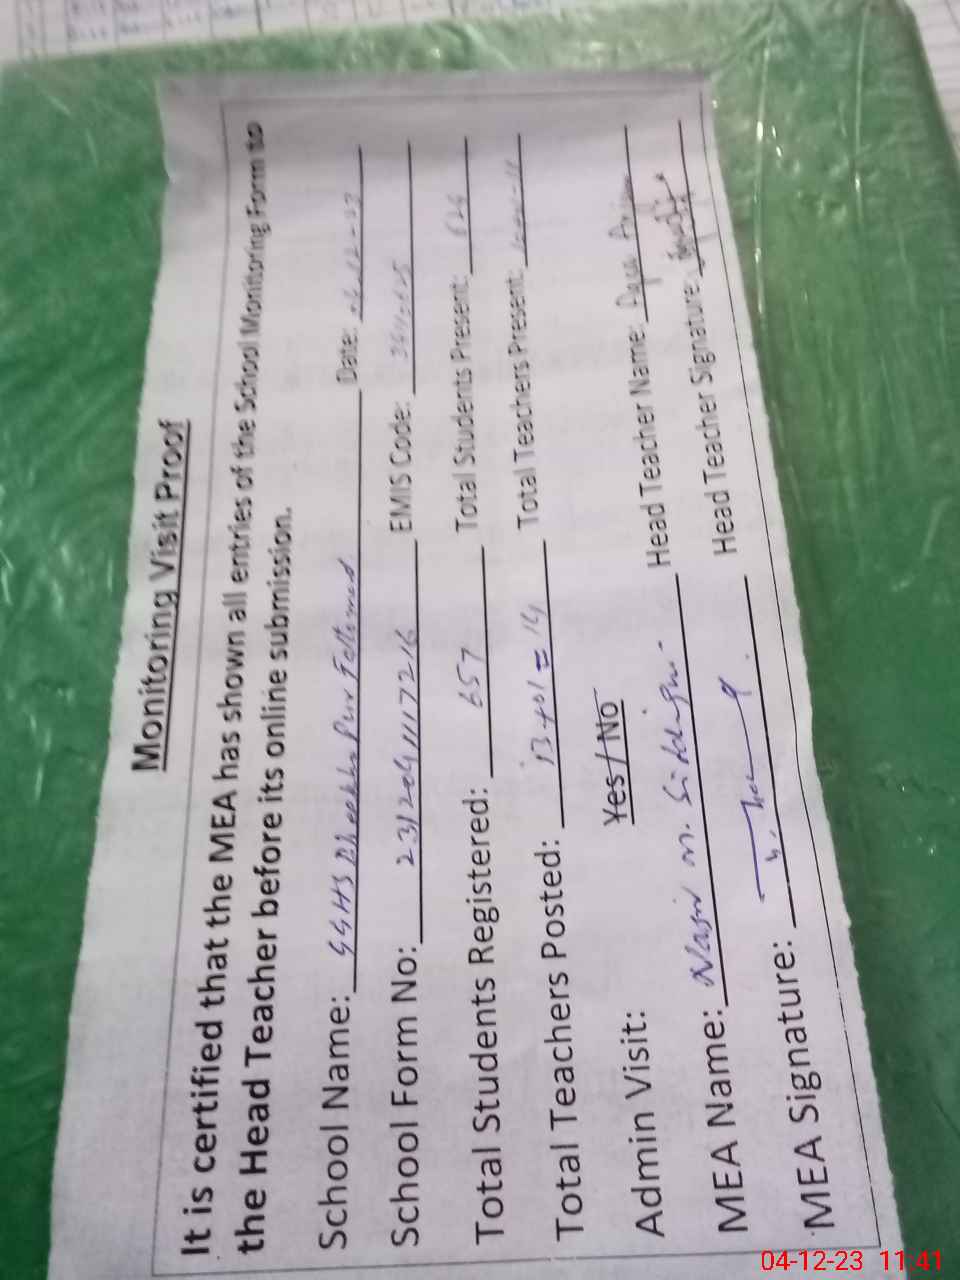 Monitoring Visit Proof
It is certified that the MEA has shown all entries of the School Monitoring Form to
the Head Teacher before its online submission.
School Name: GGHS Pur Date: -12-23
School Form No: 2312041117216 EMIS Code:
Total Students Registered: 657 Total Students Present:
Total Teachers Posted: 13+01=14 Total Teachers Present:
Admin Visit: Yes / No Head Teacher Name:
MEA Name: Nasir m. Siddiqui Head Teacher Signature:
MEA Signature:
04-12-23 11:41